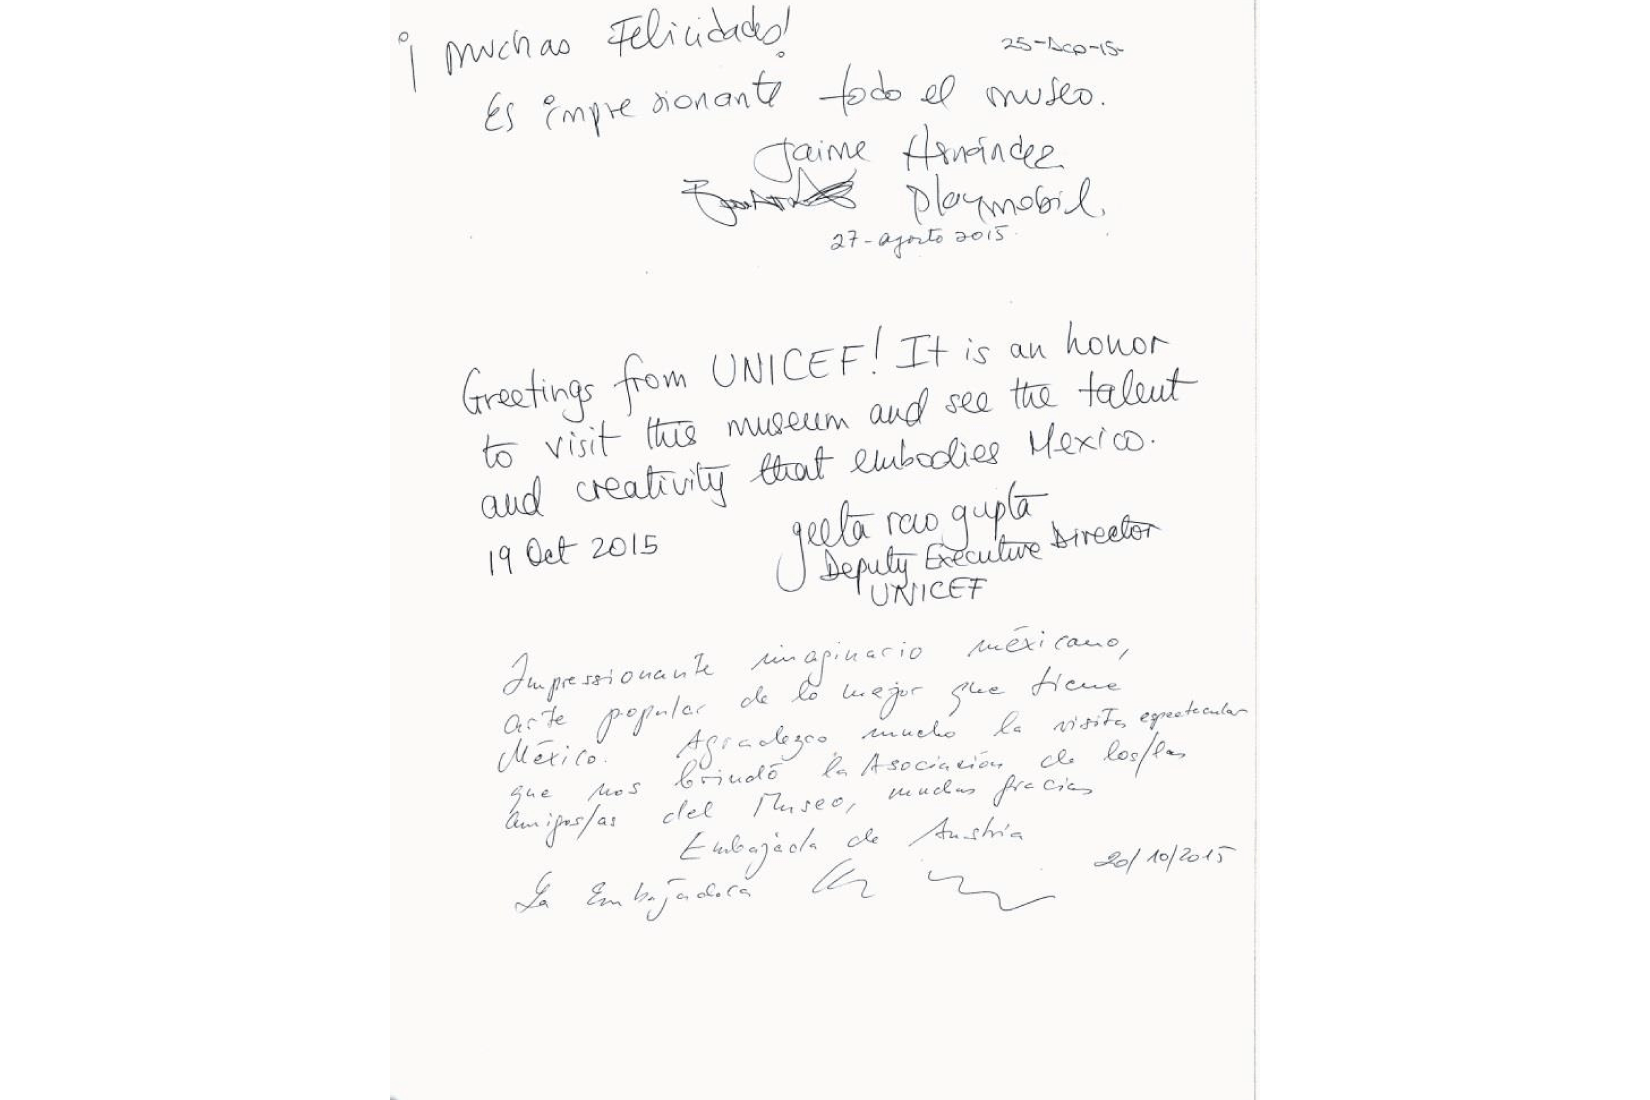 ¡Muchas Felicidades!
25-Ago-15
Es impresionante todo el museo.
Jaime Hernández
Playmobil.
27-agosto 2015
Greetings from UNICEF! It is an honor
to visit this museum and see the talent
and creativity that embodies Mexico.
geeta rao gupta
19 Oct 2015
Deputy Executive Director
UNICEF
Impressionante imaginario méxicano,
arte popular de lo mejor que tiene
México. Agradezco mucho la visita espectacular
que nos brindó la Asociación de los/las
amigos/as del Museo, muchas gracias
Embajada de Austria
20/10/2015
La Embajadora